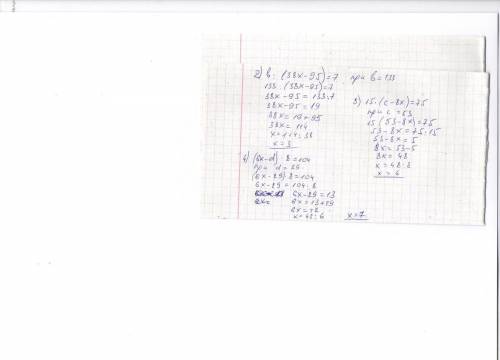 2) b : (38x-95)=7 при b=133
133 : (38x-95)=7
38x-95 = 133:7
38x-95 = 19
38x = 19+95
38x = 114
x = 114:38
x=3
3) 15·(c-8x)=75
при c=53
15·(53-8x)=75
53-8x = 75:15
53-8x = 5
8x = 53-5
8x = 48
x = 48:8
x = 6
4) (6x-d)·8=104
при d=29
(6x-29)·8=104
6x-29 = 104:8
6x-29=13
6x=
6x = 13+29
6x = 42
x = 42:6
x=7